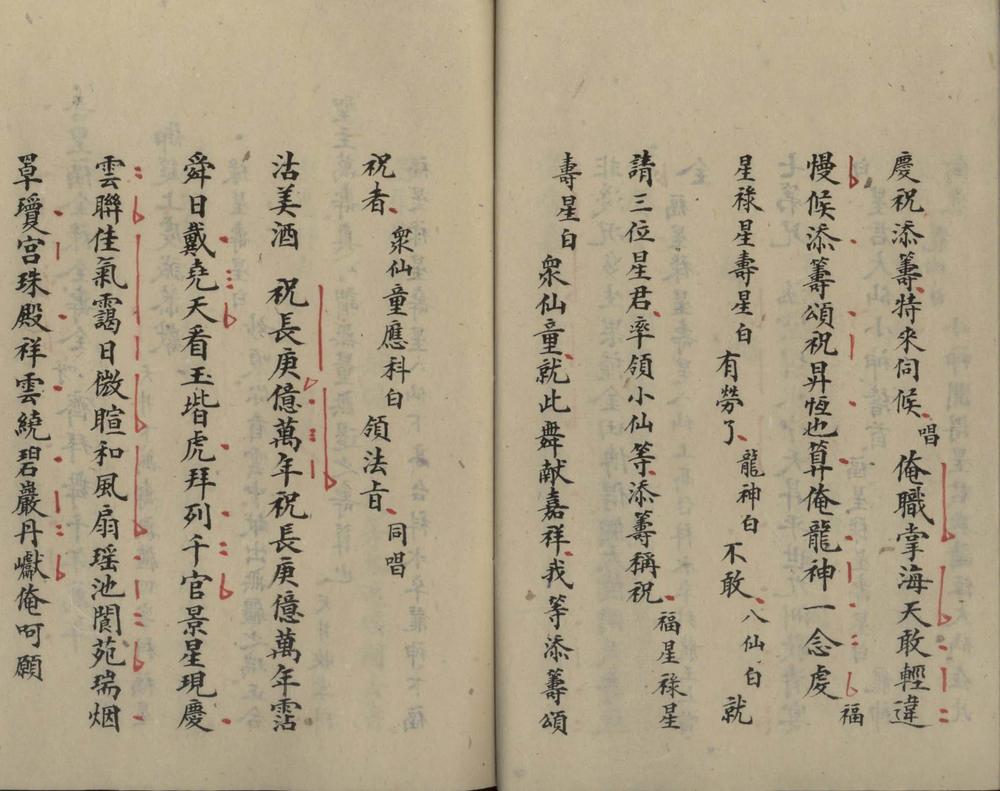 慶祝添籌特來伺候唱俺職掌海天敢輕違
慢候添籌頌祝昇恆也算俺龍神一念虔福
星祿星壽星白有勞了龍神白不敢八仙白就
請三位星君率領小仙等添籌稱祝福星祿星
壽星白衆仙童就此舞献嘉祥我等添籌頌
祝者衆仙童應科白領法旨同唱
沽美酒祝長庚億萬年祝長庚億萬年霑
舜日戴堯天看玉堦虎拜列千官景星現慶
雲聯佳氣靄日微暄和風扇瑶池閬苑瑞烟
罩瓊宫珠殿祥雲繞碧巖丹巘俺呵願